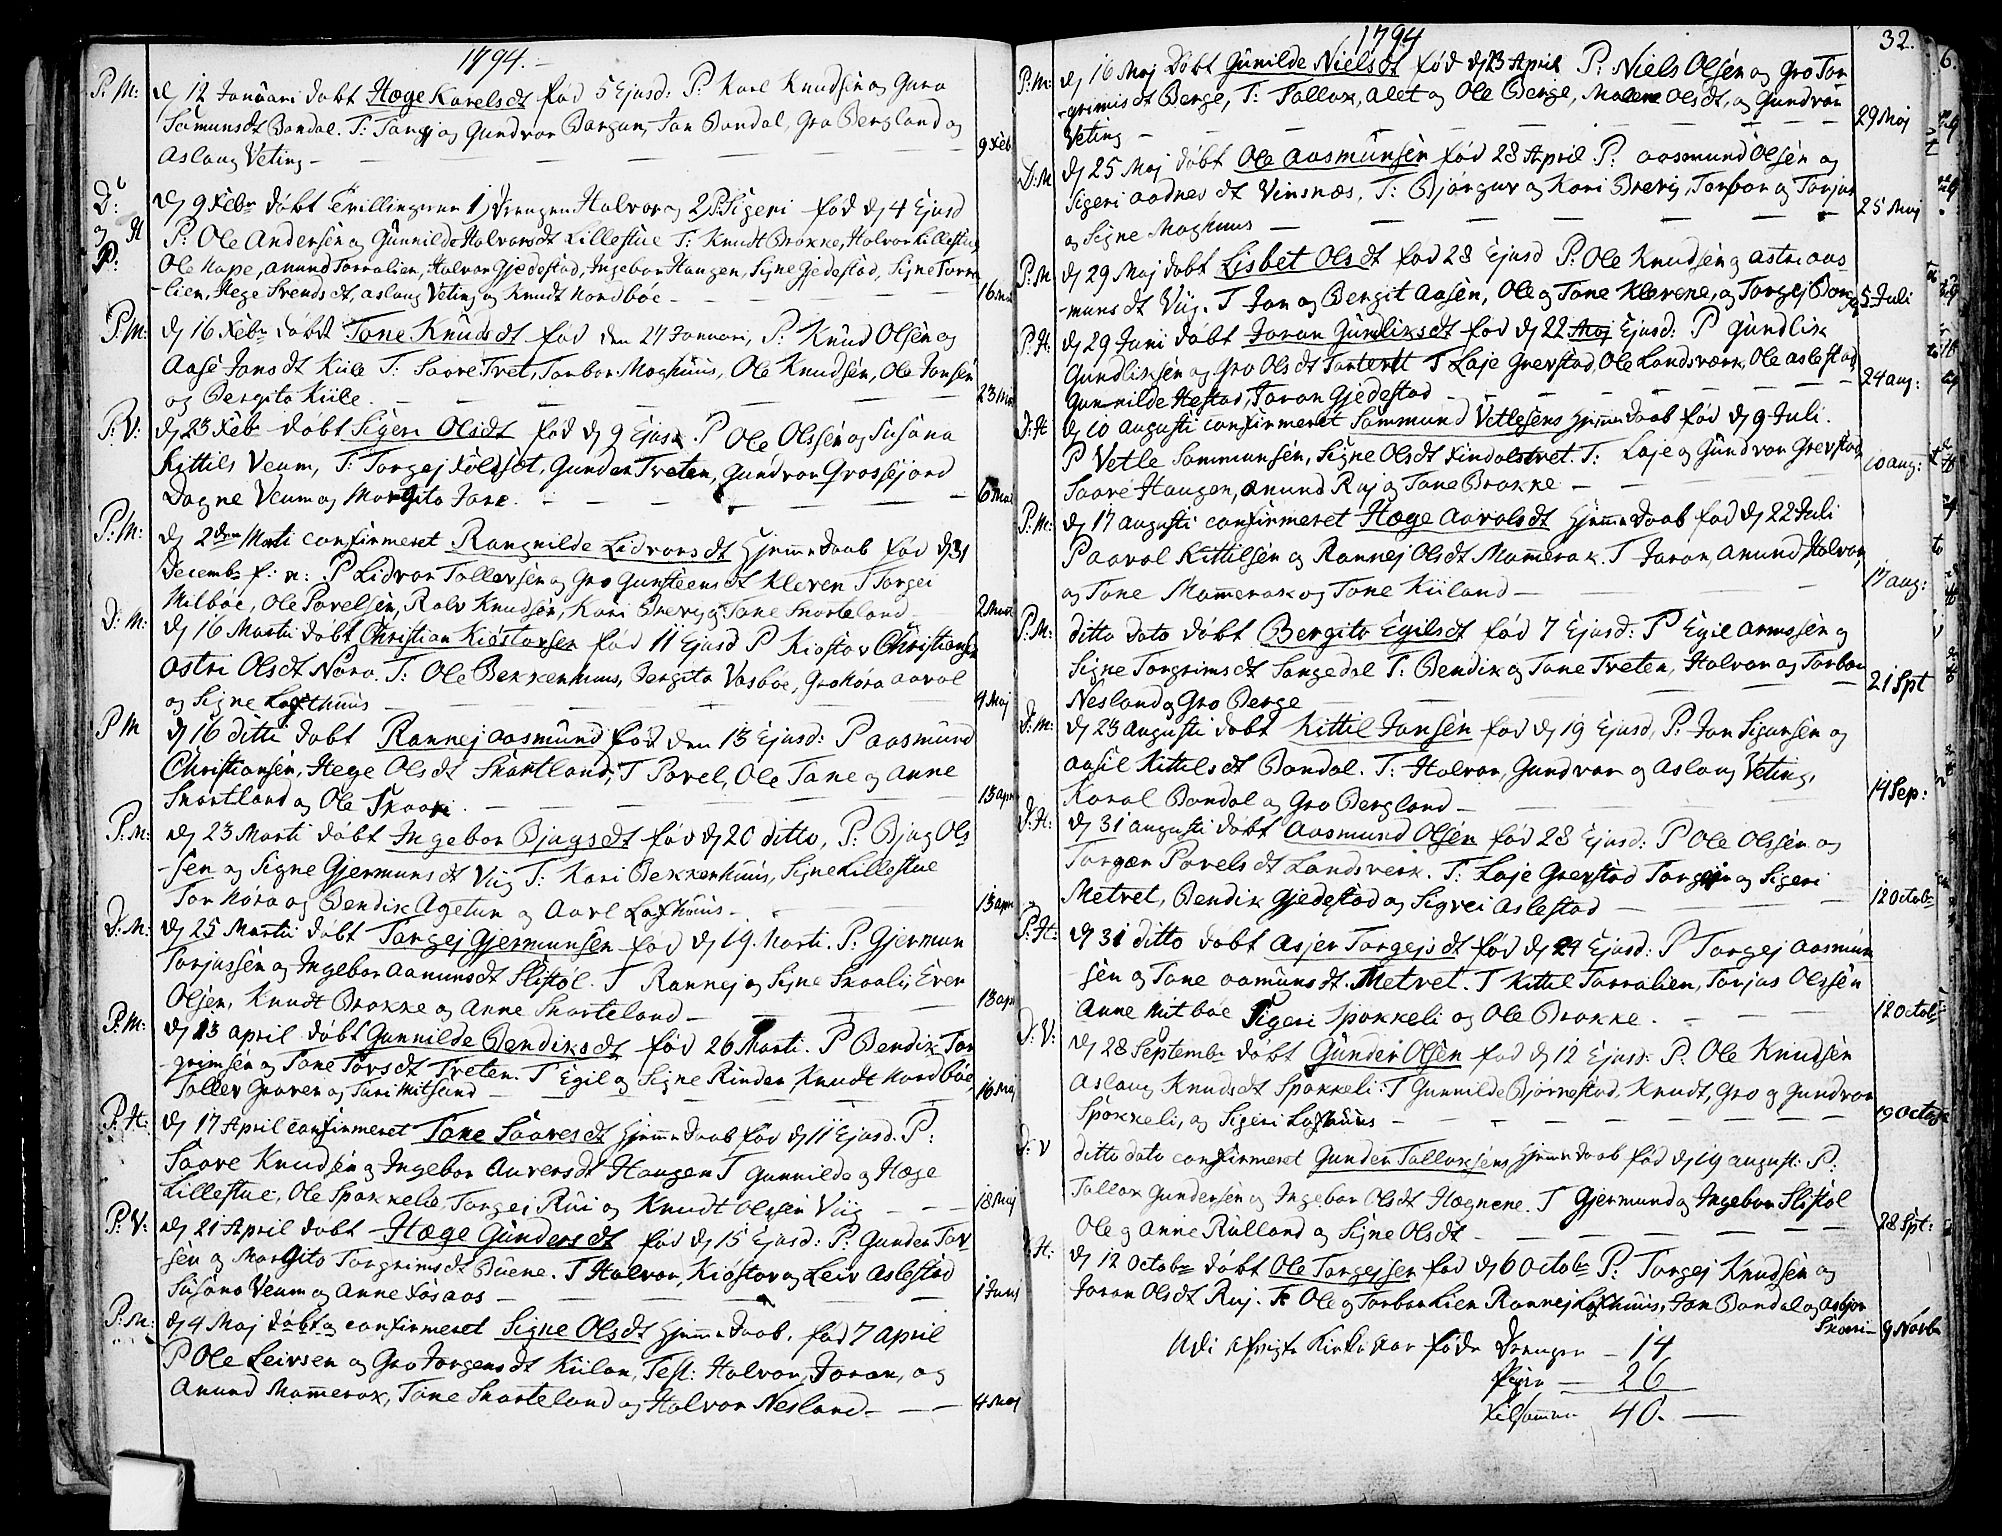 1794.
P: M: dj 12 Januari døbt Hæge Karelsdt fød 5 Ejusd: P. Karl Knudsen og Guro
Samunsdt Bandal. T: Targj og Gundvor Bargun, Jon Bandal, Gro Bergland og
Aslaug Veting — 9 Feb
D: og P: H dj 9 Febr døbt Tvillingerne 1) Drengen Halvor og 2) P. Sigeri fød dj 4 Ejusd
P: Ole Andersen og Gunnilde Halvorsdt Lillestue T: Knudt Brokke, Halvor Lillestue,
Ole Hape, Anund Torvalien, Halvor Gjedestad, Ingebor Haugen, Signe Gjedestad, Signe Torva
-lien, Hege Svendsdt, Aslaug Veting og Knudt Nordbøe — 16 Mar
P: M: dj 16 Febr døbt Tone Knudsdt fød den 27 Januari, P: Knud Olsen og
Aase Jonsdt Kiile T: Saave Tvet, Torbor Moghuus, Ole Knudsen, Ole Jonsen
og Bergito Kiile. — 23 Mar
P: V: dj 23 Febr døbt Sigeri Olsdt fød dj 9 Ejusd. P Ole Olssen og Susana
Kittils Veum, T: Torgej Foldsdt, Gunder Treten, Gundvor Grossejord
Dagne Veum og Margito Jore. — 6 Mai
P: M: dj 2den Marti confirmeret Rangnilde Lidvorsdt Hjemme Daab fød dj 31
Decembr f: a: P Lidvor Tallevsen og Gro Gunsteensdt Kleven T Torgei
Milbøe, Ole Povelsen, Ralv Knudsøn, Kari Brevig og Tone Snorteland — 2 Mart
D: M: dj 16 Martii døbt Christian Kiøstovsen fød 11 Ejusd P Kiøstov Christiansen
Astri Olsdt Nøra, T: Ole Bekkenhuus, Bergito Vasbøe, Gro Nøra Aavol
og Signe Lofthuus — 9 Maj
P M dj 16 ditti døbt Rannej Aasmund fød den 13 Ejusd: P Aasmund
Christiansen, Hege Olsdt Snartland, T Povel, Ole Tone og Anne
Snartland og Ole Skaari. — 13 apr
P: M: dj 23 Marti døbt Ingebor Bjugsdt fød dj 20 ditto, P: Bjug Ols
-sen og Signe Gjermunsdt Viig T: Kari Bekkenhuus, Signe Lillestue
Tor Nøra og Bendix Agetun og Aavl Lofthuus — 13 apr
D: M: dj 25 Martii døbt Torgej Gjermunsen fød dj 19. Marti. P: Gjermun
Torjussen og Ingebor Aamunsdt Slistøl. T Rannej og Signe Skaali, Even
Olsen, Knudt Brokke og Anne Snorteland — 13 apr
P: M: dj 13 april døbt Gunnilde Bendiksdt fød 26 Marti. P Bendix Tor
grimsen og Tone Torsdt Treten. T Egil og Signe Rinden Knudt Nordbøe,
Tallev Graven og Turi Mitsund — 16 Maj
P: H: dj 17 April confirmeret Tone Saavesdt Hjemme Daab fød dj 11 Ejusd. P:
Saave Knudsen og Ingebor Auversdt Haugen T Gunnilde og Hæge
Lillestue, Ole Spokkelie, Torgei Rui og Knudt Olssen Viig — 18 Maj
P: V: dj 21 April døbt Hæge Gundersdt fød dj 15 Ejusd: P: Gunder Tov
sen og Margito Torgrimsdt Buene. T Halvor, Kiøstov og Leiv Aslestad
Susana Veum og Anne Fosaas — 1 Juni
P: M: dj 4 Maj døbt og confirmeret Signe Olsdt Hjemme Daab. fød 7 April
P Ole Leivsen og Gro Jorgensdt Kiilan, Test: Halvor, Joran, og
Anund Mammerak, Tone Snorteland og Halvor Nesland — 4 Maj
1794
32.
P: M: dj 16 Maj Døbt Gunilde Nielsdt fød dj 23 April P: Niels Olsen og Gro Tor
-grimsdt Berge, T: Tallov, Alet og Ole Berge, Malene Olsdt, og Gundvor
Veting — 29 Maj
D: M dj 25 Maj døbt Ole Aasmunsen fød 28 April P: Aasmund Olsen og
Sigeri Aadnesdt Vinsnæs, T: Bjørguv og Kari Brevig, Torbor og Torjus
og Signe Moghuus — 25 Maj
P: M dj 29 Maj døbt Lisbet Olsdt fød 28 Ejusd P: Ole Knudsen og Astri Aas-
-munsdt Viig. T Jon og Bergit Aasen, Ole og Tone Klevene, og Torgej Borg — 5 Juli
P: H: dj 29 Juni døbt Joran Gunliksdt fød dj 22 Ejusd: P Gundlik
Gundliksen og Gro Olsdt Tartvett T Laje Grevstad, Ole Landsværk, Ole Aslestad
Gunnilde Hestad, Joran Gjedestad — 24 aug:
D: H dj 10 Augusti confirmeret Sammund Vetlesens Hjemme Daab fød dj 9 Juli.
P Vetle Sammunsen, Signe Olsdt Findalstvet. T: Laje og Gundvor Grevstad
Saave Haugen, Anund Ruj og Tone Brokke — 10 aug:
P: M: dj 17 augusti confirmeret Hæge Aavolsdt Hjemme Daab fød dj 22 Juli
P Aavol Kittilsen og Rannej Olsdt Mammerak. T Joran, Anund, Halvor,
og Tone Mammerak og Tone Kiiland — 17 aug:
P: M: ditto dato døbt Bergito Egilsdt fød 7 Ejusd: P Egil Arnssen og
Signe Torgrimsdt Langedal T: Bendix og Tone Treten, Halvor og Torbor
Nesland og Gro Berge — 21 Spt
D: M: dj 23 Augusti døbt Kittil Jonsen fød dj 19 Ejusd, P: Jon Sigunsen og
Aasil Kittilsdt Bandal. T: Halvor, Gundvor og Aslaug Veting,
Karal Bandal og Gro Bergland — 14 Sep:
D: H: dj 31 augusti døbt Aasmund Olsen fød 28 Ejusd: P Ole Olssen og
Torgær Povelsdt Landsverk. T: Laje Grevstad Torgjer og Sigeri
Metvet, Bendix Gjedestad og Sigvei Aslestad — 12 Octobr
P: H: dj 31 ditto døbt Asjer Torgejsdt fød dj 24 Ejusd: P Torgej Aasmun
-sen og Tone Aamunsdt. Metvet. T Kittil Torvalien, Torjus Olssen
Anne Mitbøe Sigeri Spokkeli og Ole Brokke. — 12 Octob:
D: V: dj 28 Septembr døbt Gunder Olsen fød dj 12 Ejusd: P: Ole Knudsen
Aslaug Knudsdt Spokkeli: T Gunnilde Bjørnestad, Knudt, Gro og Gundvor
Spokkeli, og Sigeri Lofthuus — 19 Octobr
D: V ditto dato confirmeret Gunder Tallaksens Hjemme Daab fød dj 19 august: P:
Tallak Gundersen og Ingebor Olsdt Hægnene. T Gjermund og Ingebor Slistøl
Ole og Anne Rulland og Signe Olsdt — 28 Spt:
D: H: dj 12 Octobr døbt Ole Torgejsen fød dj 6 Octobr P: Torgej Knudsen og
Joran Olsdt Ruj. T: Ole og Torbor Lien Rannej Lofthuus, Jon Bandal og Asbjør
Skaari — 9 Novbr
Udi Kirke Aar fødte Drenger — 14
Piger — 26
tilsammen 40. —